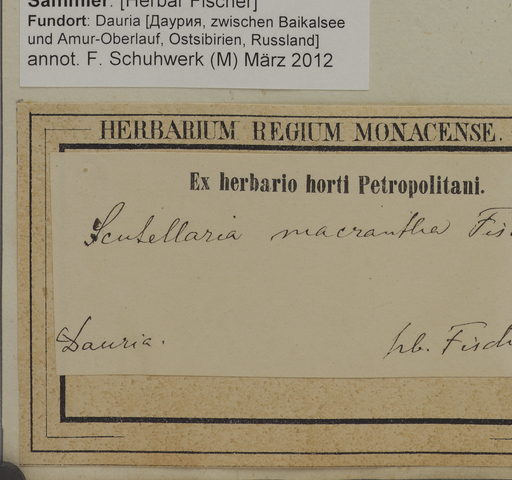 Sammler: [Herbar Fischer]
Fundort: Dauria [Даурия, zwischen Baikalsee
und Amur-Oberlauf, Ostsibirien, Russland]
annot. F. Schuhwerk (M) März 2012
HERBARIUM REGIUM MONACENSE.
Ex herbario horti Petropolitani.
Scutellaria macrantha Fis
Dauria. hb. Fisch